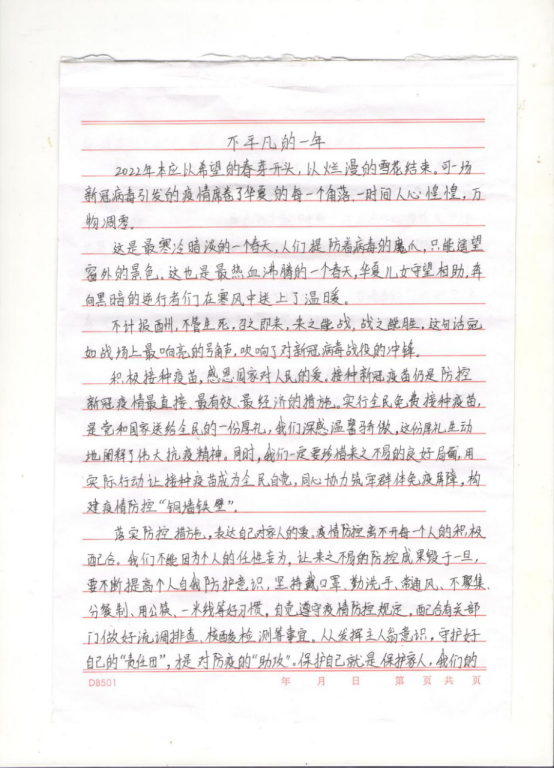 不平凡的一年
2022年本应以希望的春芽开头,以烂漫的雪花结束。可一场
新冠病毒引发的疫情席卷了华夏的每一个角落、一时间人心惶惶,万
物凋零。
这是最寒冷暗淡的一个春天,人们提防着病毒的魔爪,只能遥望
窗外的景色。这也是最热血沸腾的一个春天,华夏儿女守望相助,奔
向黑暗的逆行者们在寒风中送上了温暖。
不计报酬,不管生死,召之即来,来之能战,战之能胜,这句话宛
如战场上最响亮的号角声,吹响了对新冠病毒战役的冲锋。
积极接种疫苗,感恩国家对人民的爱。接种新冠疫苗仍是防控
新冠疫情最直接、最有效、最经济的措施。实行全民免费接种疫苗,
是党和国家送给全民的一份厚礼,我们深感温馨骄傲,这份厚礼生动
地阐释了伟大抗疫精神。同时,我们一定要珍惜来之不易的良好局面,用
实际行动让接种疫苗成为全民自觉,同心协力筑牢群体免疫屏障,构
建疫情防控“铜墙铁壁”。
落实防控措施,表达自己对家人的爱。疫情防控离不开每一个人的积极
配合。我们不能因为个人的任性妄为,让来之不易的防控成果毁于一旦,
要不断提高个人自我防护意识,坚持戴口罩、勤洗手、常通风、不聚集、
分餐制、用公筷、一米线等好习惯。自觉遵守疫情防控规定,配合有关部
门做好流调排查、核酸检测等事宜。人人发挥主人翁意识,守护好
自己的“责任田”,才是对防疫的“助攻”。保护自己就是保护家人,我们的
DB501 年 月 日 第 页 共 页